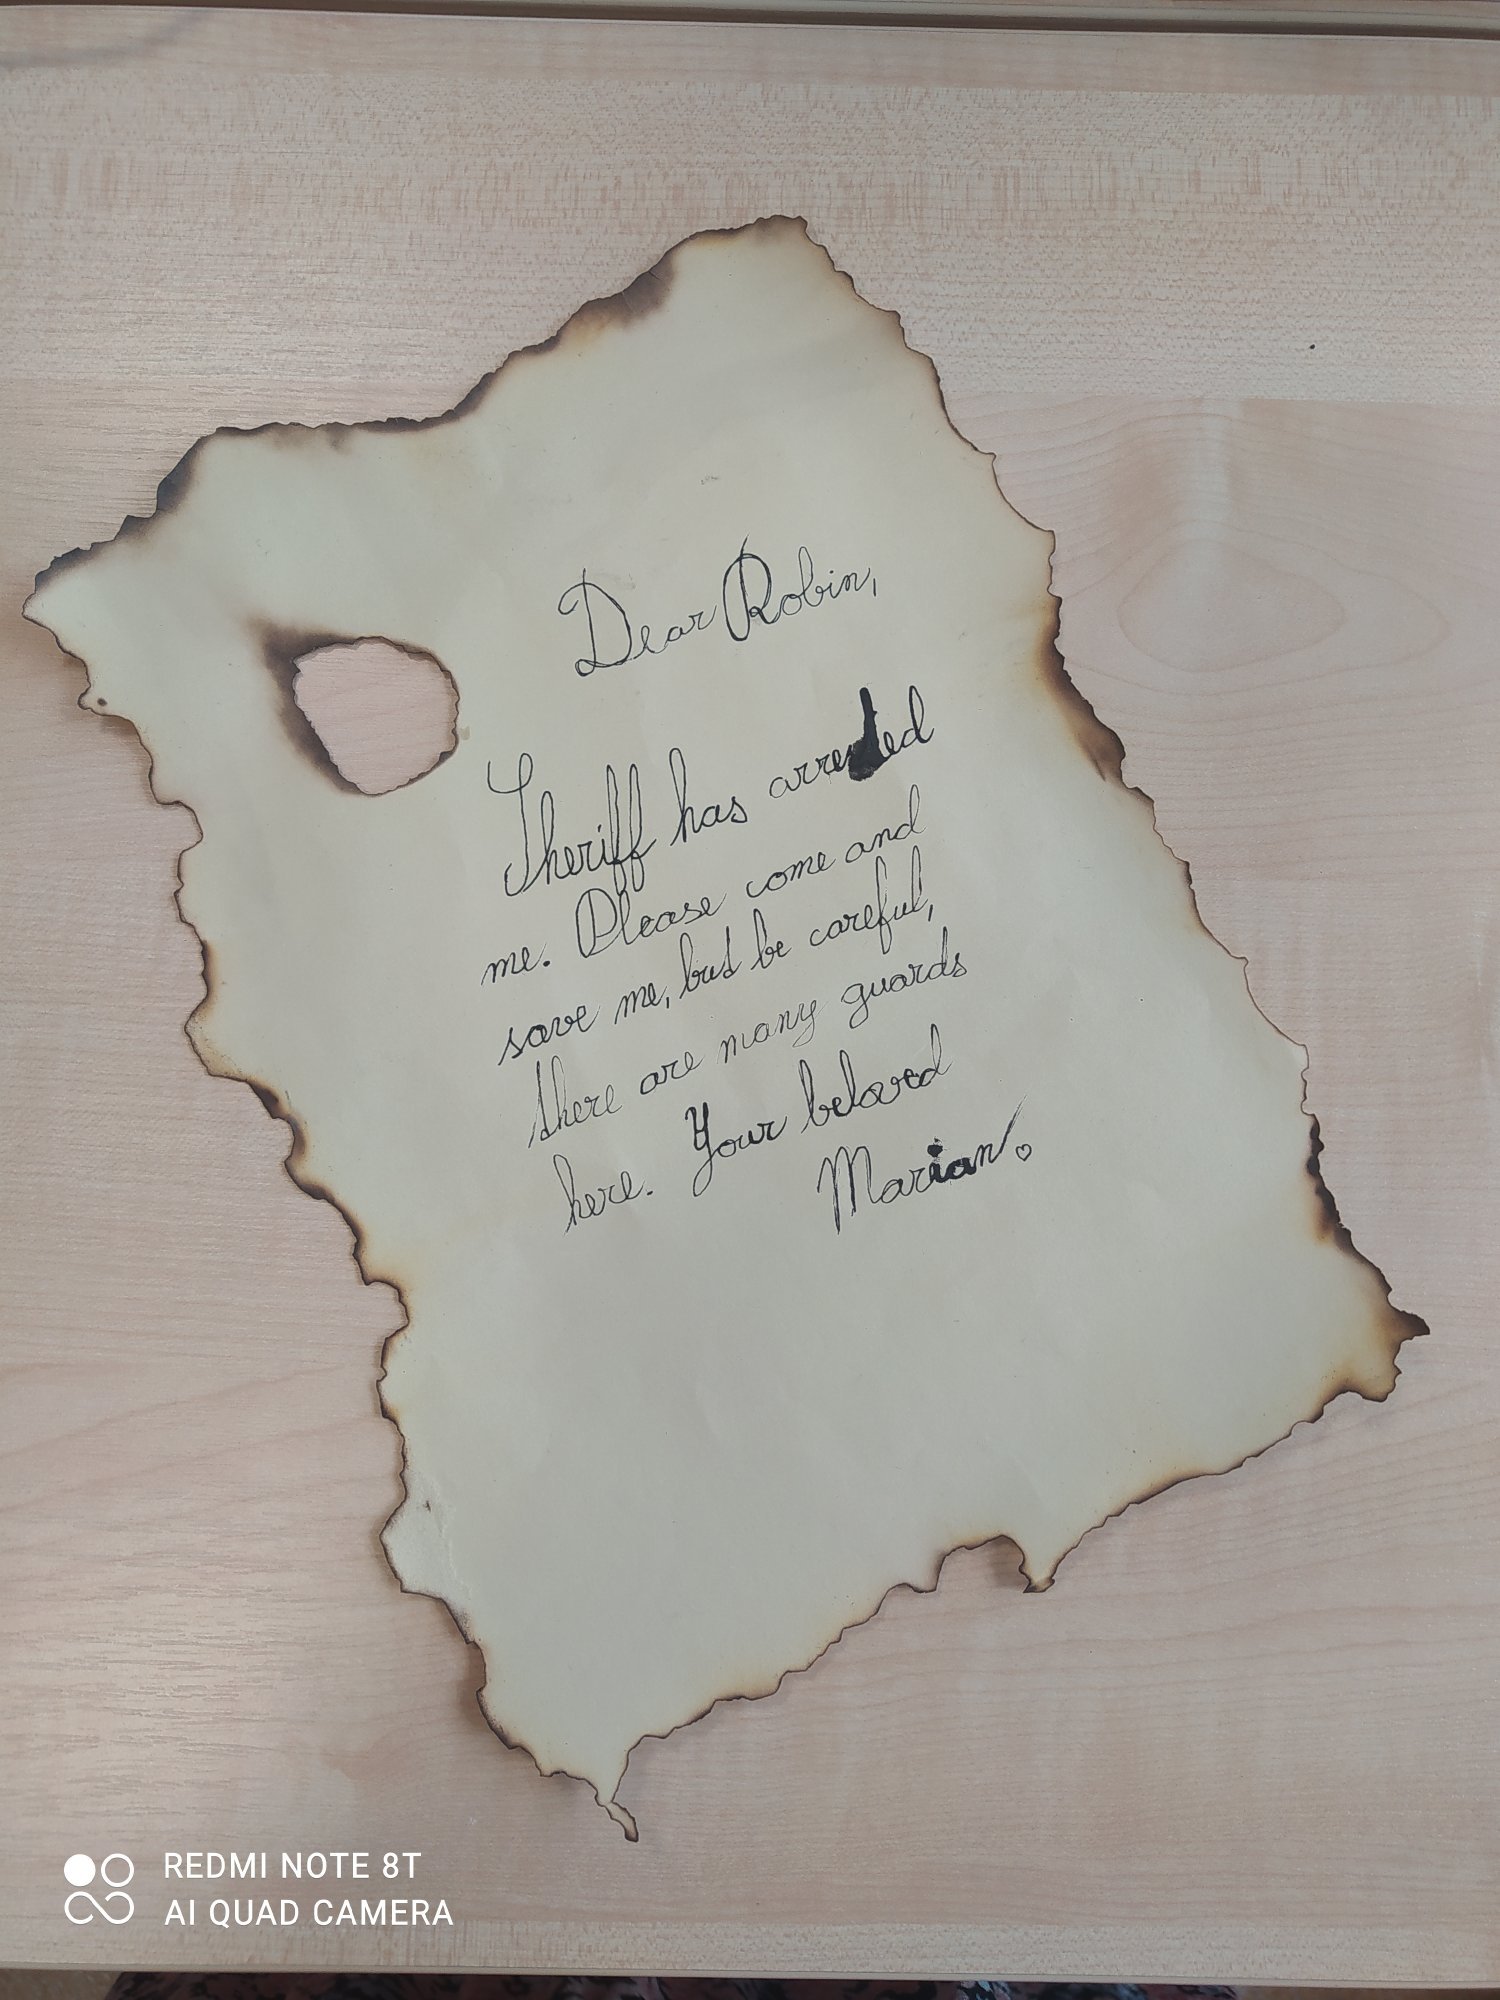 Dear Robin,
Sheriff has arrested
me. Please come and
save me, but be careful,
there are many guards
here. Your beloved
Marian ♡
REDMI NOTE 8T
AI QUAD CAMERA